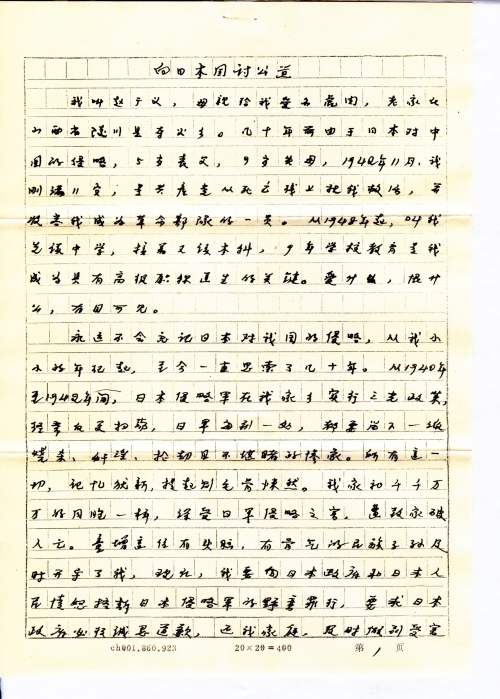 向日本国讨公道
我叫赵义，母亲给我名虎闹，老家在
山西省陵川县义乡。几十年前由于日本对中
国的侵略，5岁丧父，9岁失母，1942年11月，我
刚满11岁，是共产党从死亡线上把我救活，并
收养我成为革命部队的一员。从1948年起，叫我
先读中学，接着又读本科，9年学校教育是我
成为具有高级职称医生的关键。爱什么，恨什
么，有目可见。
永远不会忘记日本对我国的侵略，从我小
小的年纪起，至今一直思索了几十年。从1940年
至1942年间，日本侵略军在我家乡实行三光政策，
经常反复扫荡，日军每到一处，都要留下一
烧杀、奸淫、抢劫目不忍睹的惨象。所有这一
切，记忆犹新，提起则毛骨悚然。我家和千千万
万的同胞一样，深受日军侵略之害，遭致家破
人亡。童增这位有头脑，有骨气的民族子孙及
时开导了我，现在，我要向日本政府和日本人
民愤怒控诉日本侵略军的野蛮罪行，要求日本
政府必须诚恳道歉，还我家庭，及时做到受害
ch001.860.923 20×20=400 第 1 页